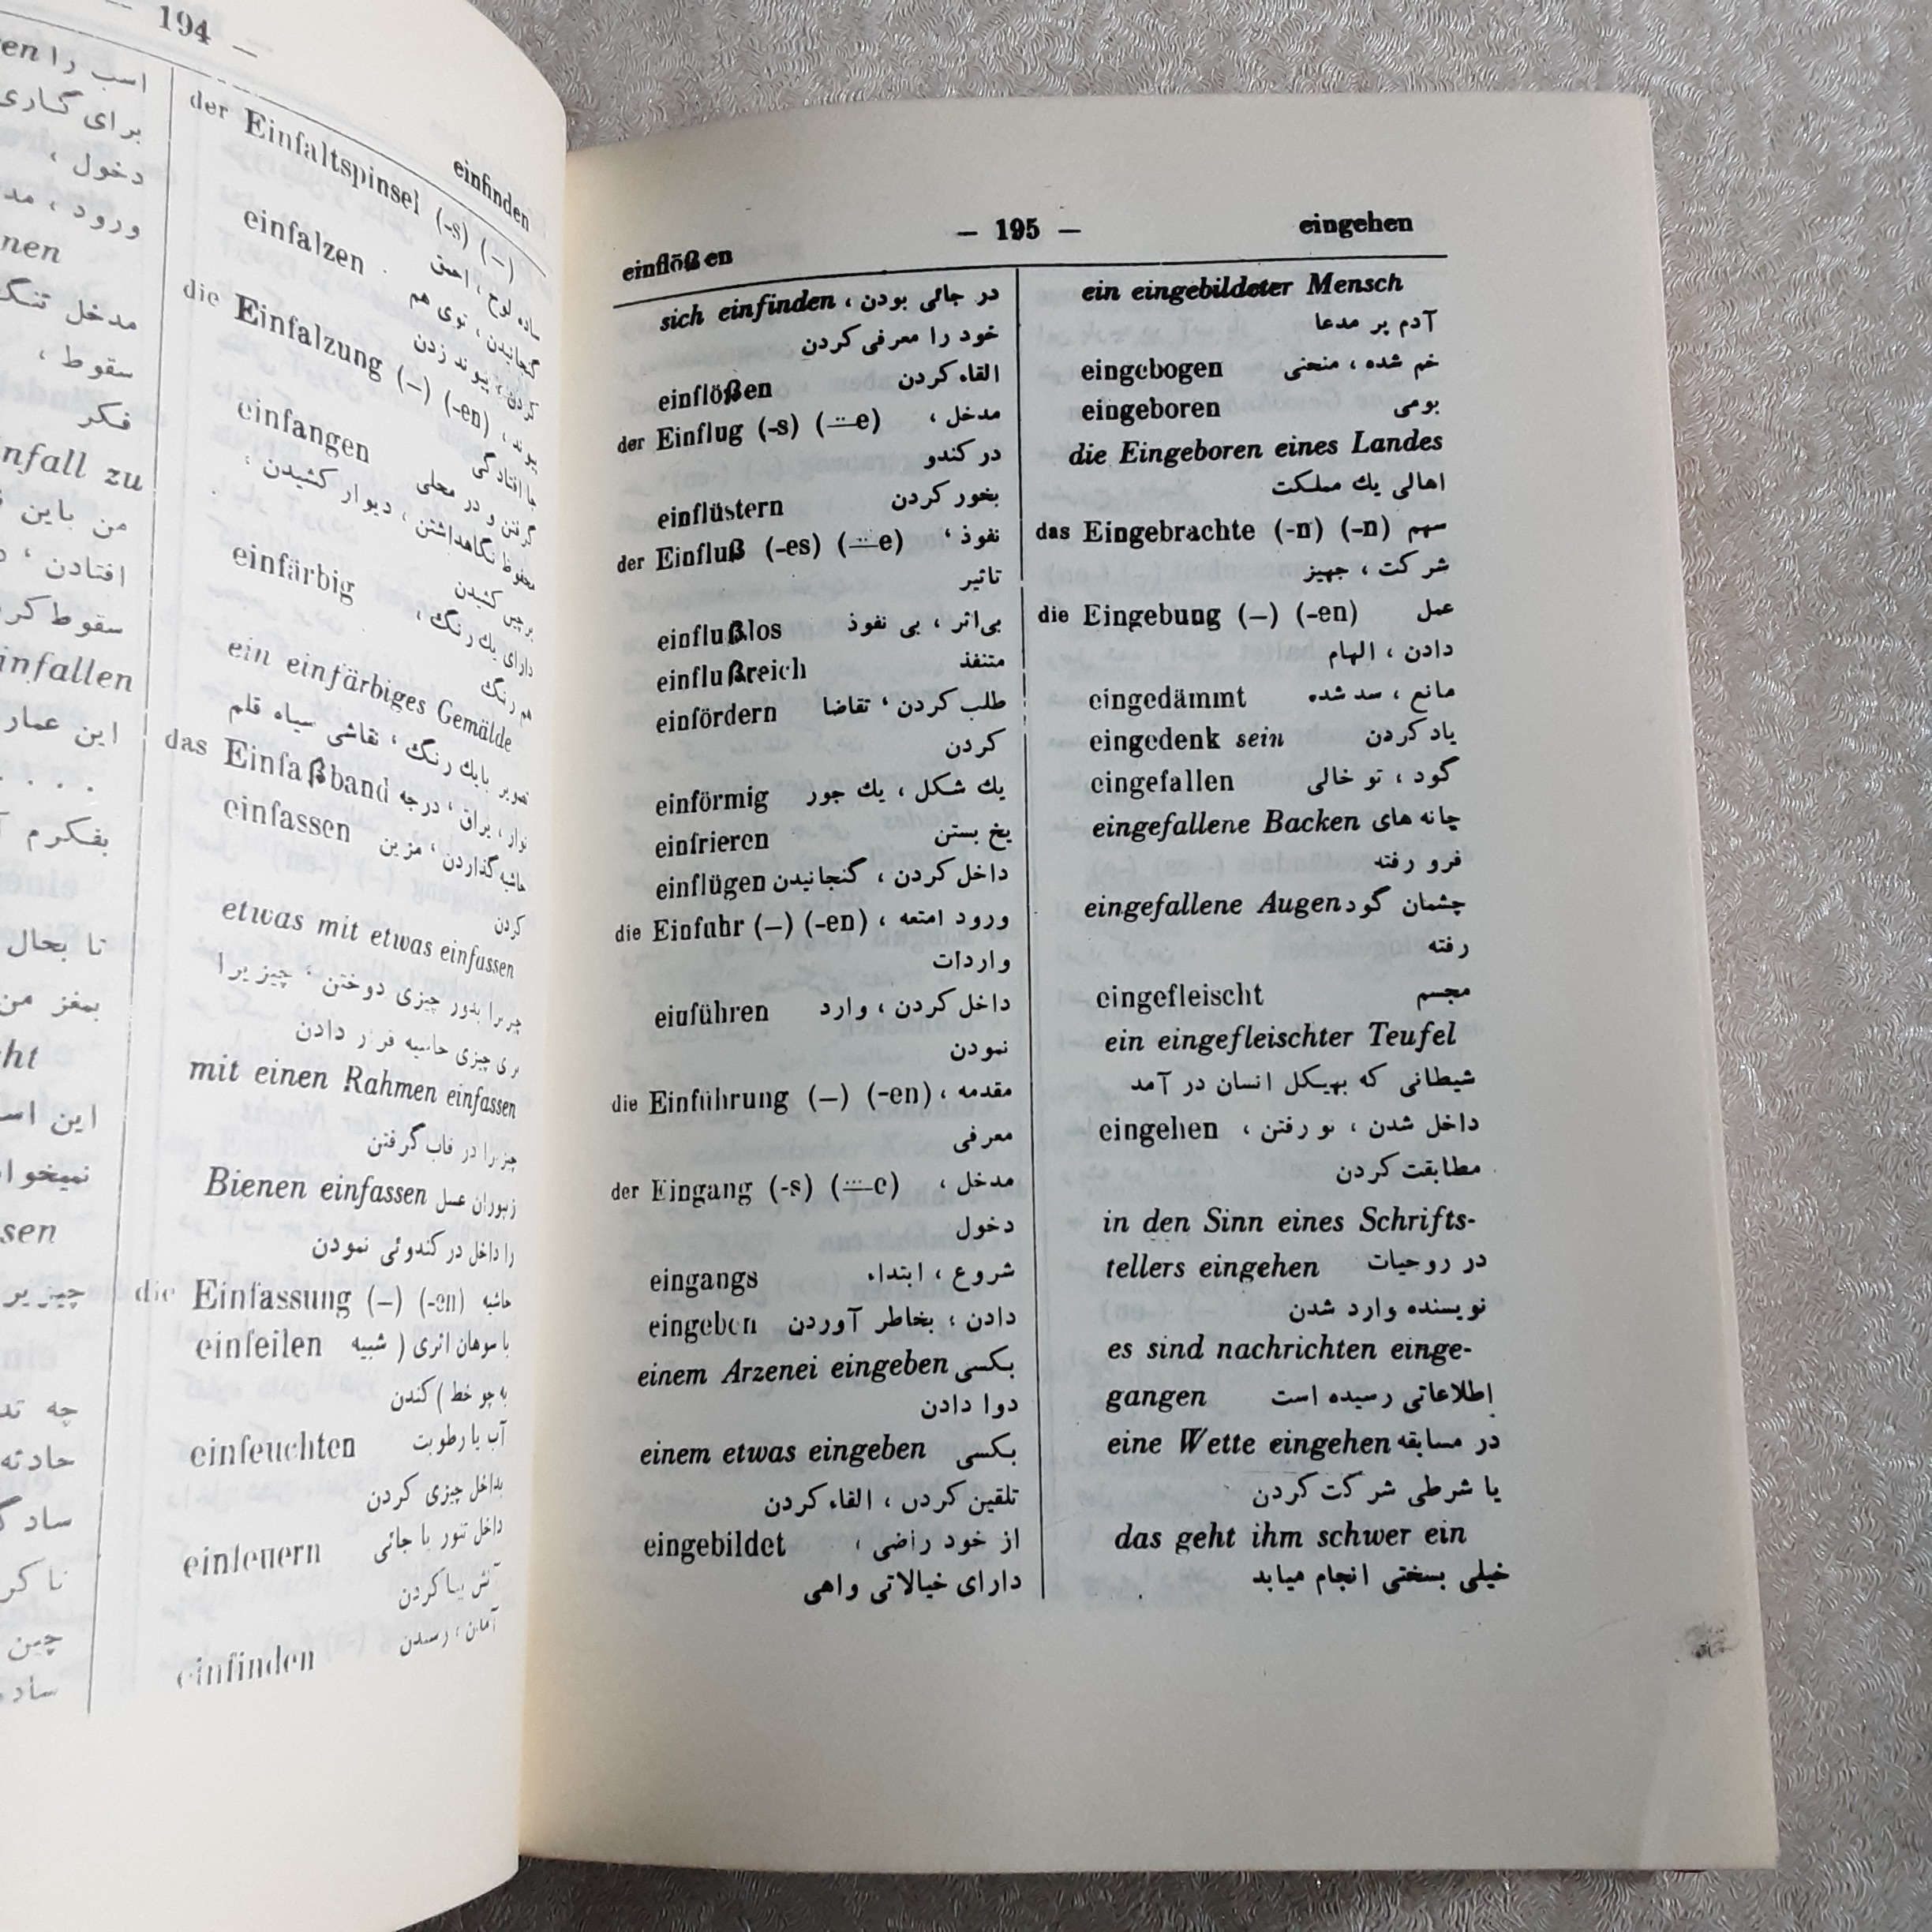 — 194 —
einfinden
اسب را
برای گاری
دخول ،
ورود ،
nen
مدخل
سقوط ،
فکر
nfall zu
من باین
افتادن ،
سقوط
infallen
این
. . . .
بفکرم
تا بحال
بمغز من
cht
این
ssen
چیز
چه
حادثه
چین
der Einfaltspinsel (-s) (–)
ساده لوح ، احمق
einfalzen گنجانیدن ، توی هم
کردن ، پیوند زدن
die Einfalzung (–) (-en) پیوند ،
جا افتادگی
einfangen گرفتن و در محلی
محفوظ نگاهداشتن ، دیوار کشیدن ،
پرچین کشیدن
einfärbig دارای یك رنگ ،
هم رنگ
ein einfärbiges Gemälde
تصویر بایك رنگ ، نقاشی سیاه قلم
das Einfaßband نوار ، یراق ، درجه
einfassen حاشیه گذاردن ، مزین
کردن
etwas mit etwas einfassen
چیزیرا بدور چیزی دوختن ، چیزیرا
برای چیزی حاشیه قرار دادن
mit einen Rahmen einfassen
چیزیرا در قاب گرفتن
Bienen einfassen زنبوران عسل
را داخل در کندوئی نمودن
die Einfassung (–) (-en) حاشیه
einfeilen با سوهان اثری ( شبیه
به چو خط ) کندن
einfeuchten آب یا رطوبت
بداخل چیزی کردن
einfeuern داخل تنور یا جائی
آتش بپا کردن
einfinden آمدن ، رسیدن
einflößen — 195 — eingehen
sich einfinden در جائی بودن ،
خود را معرفی کردن
einflößen القاء کردن
der Einflug (-s) (⸚e) مدخل ،
در کندو
einflüstern بخور کردن
der Einfluß (-es) (⸚e) نفوذ ،
تاثیر
einflußlos بی‌اثر ، بی نفوذ
einflußreich متنفذ
einfördern طلب کردن ، تقاضا
کردن
einförmig یك شکل ، یك جور
einfrieren یخ بستن
einflügen داخل کردن ، گنجانیدن
die Einfuhr (–) (-en) ورود امتعه ،
واردات
einführen داخل کردن ، وارد
نمودن
die Einführung (–) (-en) مقدمه ،
معرفی
der Eingang (-s) (⸚e) مدخل ،
دخول
eingangs شروع ، ابتداء
eingeben دادن ، بخاطر آوردن
einem Arzenei eingeben بکسی
دوا دادن
einem etwas eingeben بکسی
تلقین کردن ، القاء کردن
eingebildet از خود راضی ،
دارای خیالاتی واهی
ein eingebildeter Mensch
آدم پر مدعا
eingebogen خم شده ، منحنی
eingeboren بومی
die Eingeboren eines Landes
اهالی یك مملکت
das Eingebrachte (-n) (-n) سهم
شرکت ، جهیز
die Eingebung (–) (-en) عمل
دادن ، الهام
eingedämmt مانع ، سد شده
eingedenk sein یاد کردن
eingefallen گود ، تو خالی
eingefallene Backen چانه های
فرو رفته
eingefallene Augen چشمان گود
رفته
eingefleischt مجسم
ein eingefleischter Teufel
شیطانی که بهیکل انسان در آمد
eingehen داخل شدن ، تو رفتن ،
مطابقت کردن
in den Sinn eines Schrifts-
tellers eingehen در روحیات
نویسنده وارد شدن
es sind nachrichten einge-
gangen اطلاعاتی رسیده است
eine Wette eingehen در مسابقه
یا شرطی شرکت کردن
das geht ihm schwer ein
خیلی بسختی انجام میابد